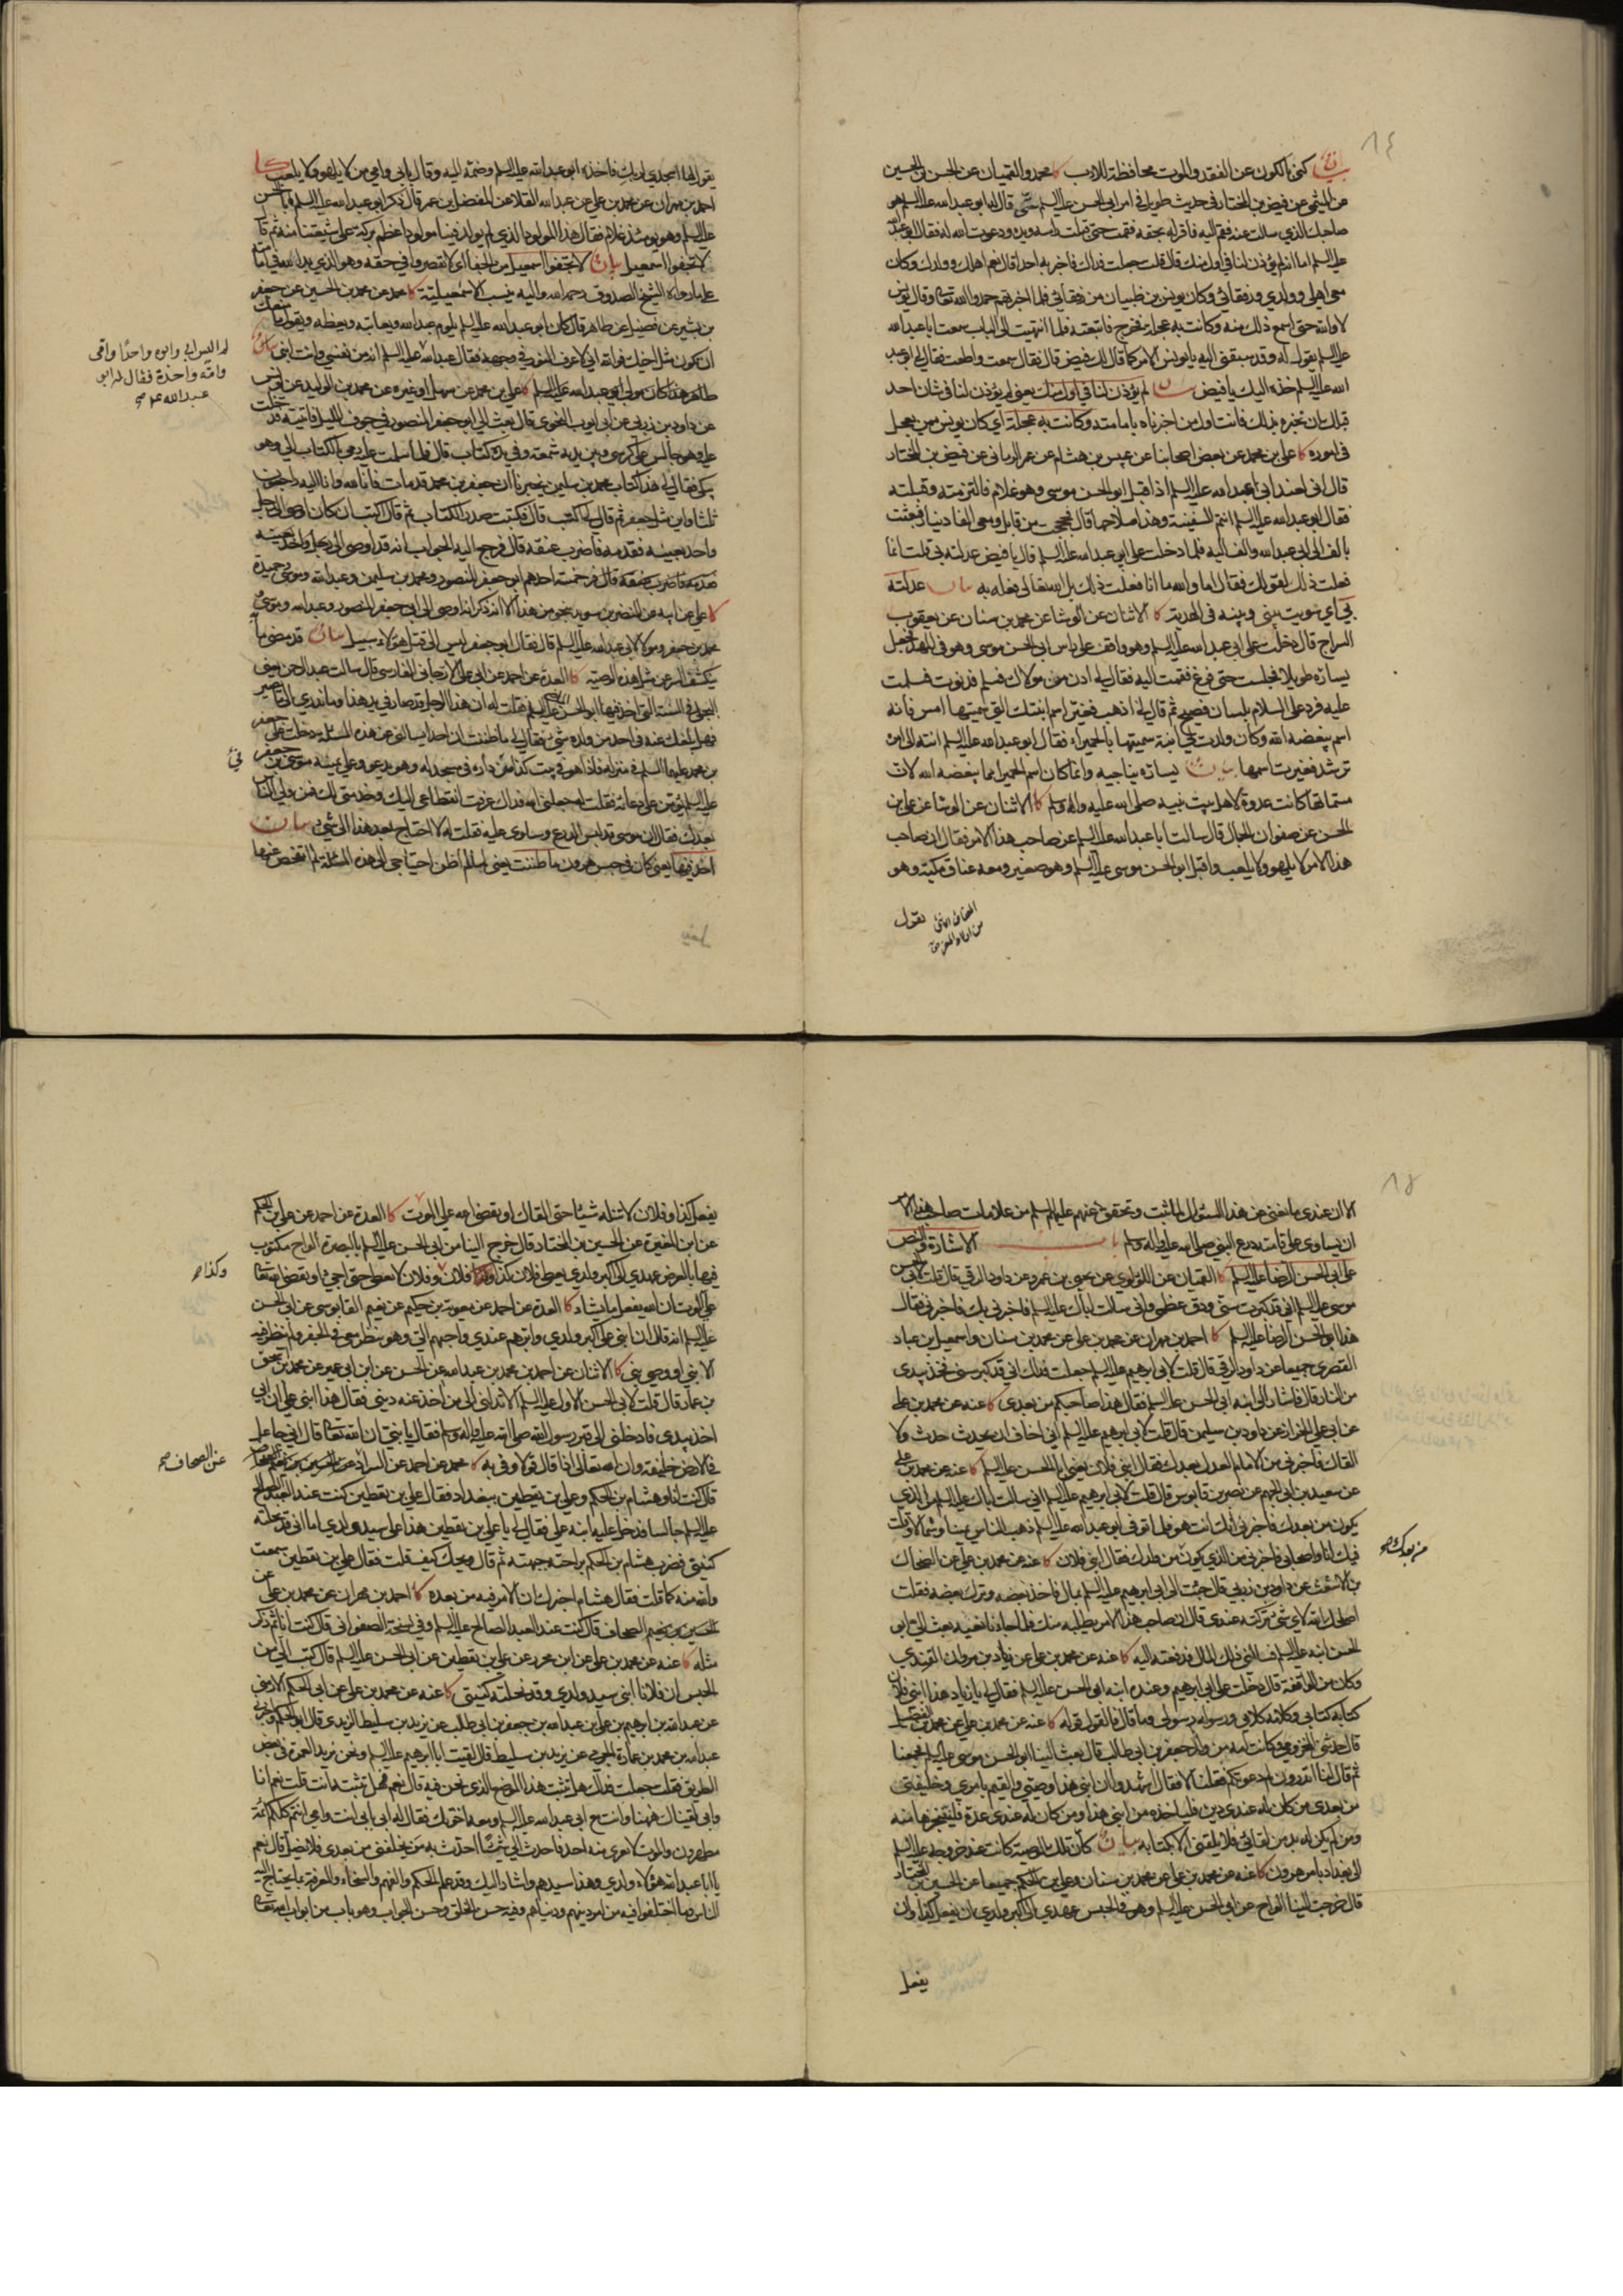 ١٤
بيان كنى بالكون عن الفقد والموت محافظة للادب كا محمد والقميان عن الحسن بن الحسين
عن الميثمي عن فيض بن المختار في حديث طويل في امر ابي الحسن عليه السلم حتى قال له ابو عبد الله عليه السلم هو
صاحبك الذي سالت عنه فقم اليه فاقر له بحقه فقمت حتى قبلت راسه ويده ودعوت الله له فقال ابو عبد الله
عليه السلم اما انه لم يؤذن لنا في اول منك قال قلت جعلت فداك فاخبر به احدا قال نعم اهلك وولدك وكان
معي اهلي وولدي ورفقائي وكان يونس بن ظبيان من رفقائي فلما اخبرتهم حمدوا الله تعالى وقال يونس
لا والله حتى اسمع ذلك منه وكانت به عجلة فخرج فاتبعته فلما انتهيت الى الباب سمعت ابا عبد الله
عليه السلم يقول له وقد سبقني اليه يا يونس الامر كما قال لك فيض قال فقال سمعت واطعت فقال لي ابو عبد
الله عليه السلم خذه اليك يا فيض بيان لم يؤذن لنا في اول منك يعني لم يؤذن لنا في شان احد
قبلك بان نخبره بذلك فانت اول من اخبرناه بامامته وكانت به عجلة اي كان يونس ممن يعجل
في اموره كا علي بن محمد عن بعض اصحابنا عن عبيس بن هشام عن عمر الرماني عن فيض بن المختار
قال اني لعند ابي عبد الله عليه السلم اذ اقبل ابو الحسن موسى وهو غلام فالتزمته وقبلته
فقال ابو عبد الله عليه السلم انتم السفينة وهذا ملاحها قال فحججت من قابل ومعي الفا دينار فبعثت
بالف الى ابي عبد الله والف اليه فلما دخلت على ابي عبد الله عليه السلم قال يا فيض عدلته بي قلت انما
فعلت ذلك لقولك فقال اما والله ما انا فعلت ذلك بل الله تعالى فعله به بيان عدلته
بي اي سويت بيني وبينه في الهدية كا الاثنان عن الوشا عن محمد بن سنان عن يعقوب
السراج قال دخلت على ابي عبد الله عليه السلم وهو واقف على راس ابي الحسن موسى وهو في المهد فجعل
يساره طويلا فجلست حتى فرغ فقمت اليه فقال لي ادن من مولاك فسلم فدنوت فسلمت
عليه فرد علي السلام بلسان فصيح ثم قال لي اذهب فغير اسم ابنتك التي سميتها امس فانه
اسم يبغضه الله وكان ولدت لي ابنة سميتها بالحميراء فقال ابو عبد الله عليه السلم انته الى امره
ترشد فغيرت اسمها بيان يساره يناجيه وانما كان اسم الحميرا مما يبغضه الله لان
مسماها كانت عدوة لاهل بيت نبيه صلى الله عليه واله وسلم كا الاثنان عن الوشا عن علي بن
الحسن عن صفوان الجمال قال سالت ابا عبد الله عليه السلم عن صاحب هذا الامر فقال ان صاحب
هذا الامر لا يلهو ولا يلعب واقبل ابو الحسن موسى عليه السلم وهو صغير ومعه عناق مكية وهو
العناق الانثى
من اولاد المعز
يقول
يقول لها اسجدي لربك فاخذه ابو عبد الله عليه السلم وضمه اليه وقال بابي وامي من لا يلهو ولا يلعب كا
احمد بن مهران عن محمد بن علي عن عبد الله القلا عن المفضل بن عمر قال ذكر ابو عبد الله عليه السلم ابا الحسن
عليه السلم وهو يومئذ غلام فقال هذا المولود الذي لم يولد فينا مولود اعظم بركة على شيعتنا منه ثم قال
لا تجفوا اسمعيل بيان لا تجفوا اسمعيل من الجفا اي لا تقصروا في حقه وهو الذي بدا لله في امامته
على ما رواه الشيخ الصدوق رحمه الله واليه ينسب الاسمعيلية كا محمد عن محمد بن الحسين عن جعفر
بن بشير عن فضيل عن طاهر قال كان ابو عبد الله عليه السلم يلوم عبد الله ويعاتبه ويعظه ويقول ما منعك
ان تكون مثل اخيك فوالله اني لاعرف النور في وجهه فقال عبد الله عليه السلم انه من نفسي وانت ابني بيان
له اليس ابي وابوه واحدا وامي
وامه واحدة فقال له ابو
عبد الله ع صح
طاهر هذا كان مولى ابي عبد الله عليه السلم كا علي بن محمد عن سهل او غيره عن محمد بن الوليد عن يونس
عن داود بن زربي عن ابي ايوب النحوي قال بعث الي ابو جعفر المنصور في جوف الليل فاتيته فدخلت
عليه وهو جالس على كرسي وبين يديه شمعة وفي يده كتاب قال فلما سلمت عليه رمى بالكتاب الي وهو
يبكي فقال لي هذا كتاب محمد بن سليمن يخبرنا ان جعفر بن محمد قد مات فانا لله وانا اليه راجعون
ثلثا واين مثل جعفر ثم قال لي اكتب قال فكتبت صدر الكتاب ثم قال اكتب ان كان اوصى الى رجل
واحد بعينه فقدمه فاضرب عنقه قال فرجع اليه الجواب انه قد اوصى الى رجل واحد بعينه
فقدمه فاضرب عنقه قال فرد خمسة احدهم ابو جعفر المنصور ومحمد بن سليمن وعبد الله وموسى وحميدة
كا علي عن ابيه عن النضر بن سويد بنحو من هذا الا انه ذكر انه اوصى الى ابي جعفر المنصور وعبد الله وموسى
ومحمد بن جعفر ومولى لابي عبد الله عليه السلم قال فقال ابو جعفر ليس الى قتل هؤلاء سبيل بيان قد مضى ما
يكشف السر عن مثل هذه الوصية كا العدة عن احمد عن ابي علي الارجاني الفارسي قال سالت عبد الرحمن
البجلي في السنة التي اخذ فيها ابو الحسن الماضي عليه السلم فقلت له ان هذا الرجل قد صار في يد هذا وما ندري الى ما يصير
فهل بلغك عنه في احد من ولده شيء فقال لي ما ظننت ان احدا يسالني عن هذه المسئلة دخلت على جعفر
بن محمد عليهما السلم في منزله فاذا هو في بيت كذا من داره في مسجد له وهو يدعو وعلى يمينه موسى بن جعفر
في
عليه السلم يؤمن على دعائه فقلت له جعلني الله فداك عرفت انقطاعي اليك وخدمتي لك فمن ولي الناس
بعدك فقال ان موسى قد لبس الدرع وساوى عليه فقلت له لا احتاج بعد هذا الى شيء بيان
اخذ فيها يعني كان في حبس هرون ما ظننت يعني لم اظن احتياجي الى هذه المسئلة لم اتفحص عنها
١٥
الا ان عندي ما يغني عن هذا المسئول المثبت وتحقق عنهم عليهم السلم من علامات صاحب هذا الامر
ان يساوى على قامته درع النبي صلى الله عليه واله وسلم باب الاشارة والنص
على ابي الحسن الرضا عليه السلم كا القميان عن اللؤلؤي عن يحيى بن عمرو عن داود الرقي قال قلت لابي الحسن
موسى عليه السلم اني قد كبرت سني ودق عظمي واني سالت اباك عليه السلم فاخبرني بك فاخبرني فقال
هذا ابو الحسن الرضا عليه السلم كا احمد بن مهران عن محمد بن علي عن محمد بن سنان واسمعيل بن عباد
القصري جميعا عن داود الرقي قال قلت لابي ابرهيم عليه السلم جعلت فداك اني قد كبر سني فخذ بيدي
من النار قال فاشار الى ابنه ابي الحسن عليه السلم فقال هذا صاحبكم من بعدي كا عنه عن محمد بن علي
عن ابي علي الخزاز عن داود بن سليمن قال قلت لابي ابرهيم عليه السلم اني اخاف ان يحدث حدث ولا
القاك فاخبرني من الامام بعدك فقال ابني فلان يعني ابا الحسن عليه السلم كا عنه عن محمد بن علي
عن سعيد بن ابي الجهم عن نصر بن قابوس قال قلت لابي ابرهيم عليه السلم اني سالت اباك عليه السلم من الذي
يكون من بعدك فاخبرني انك انت هو فلما توفي ابو عبد الله عليه السلم ذهب الناس يمينا وشمالا وقلت
فيك انا واصحابي فاخبرني من الذي يكون من ولدك فقال ابني فلان كا عنه عن محمد بن علي عن الضحاك
من بعدك صح
بن الاشعث عن داود بن زربي قال جئت الى ابي ابرهيم عليه السلم بمال فاخذ بعضه وترك بعضه فقلت
اصلحك الله لاي شيء تركته عندي قال ان صاحب هذا الامر يطلبه منك فلما جاءنا نعيه بعث الي ابو
الحسن ابنه عليه السلم فسالني ذلك المال فدفعته اليه كا عنه عن محمد بن علي عن زياد بن مروان القندي
وكان من الواقفة قال دخلت على ابي ابرهيم وعنده ابنه ابو الحسن عليه السلم فقال لي يا زياد هذا ابني فلان
كتابه كتابي وكلامه كلامي ورسوله رسولي وما قال فالقول قوله كا عنه عن محمد بن علي عن محمد بن الفضيل
قال حدثني المخزومي وكانت امه من ولد جعفر بن ابي طالب قال بعث الينا ابو الحسن موسى عليه السلم فجمعنا
ثم قال لنا اتدرون لم دعوتكم فقلنا لا فقال اشهدوا ان ابني هذا وصيي والقيم بامري وخليفتي
من بعدي من كان له عندي دين فلياخذه من ابني هذا ومن كان له عندي عدة فلينجزها منه
ومن لم يكن له بد من لقائي فلا يلقني الا بكتابه بيان كان تلك الوصية كانت عند خروجه عليه السلم
الى بغداد بامر هرون كا عنه عن محمد بن علي عن محمد بن سنان وعلي بن الحكم جميعا عن الحسين بن المختار
قال خرجت الينا الواح من ابي الحسن عليه السلم وهو في الحبس عهدي الى اكبر ولدي ان يفعل كذا وان
يفعل
يفعل كذا وفلان لا تنله شيئا حتى القاك او يقضي الله علي الموت كا العدة عن احمد عن علي بن الحكم
عن ابن المغيرة عن الحسين بن المختار قال خرج الينا من ابي الحسن عليه السلم بالبصرة الواح مكتوب
فيها بالعرض عهدي الى اكبر ولدي يعطى فلان كذا وفلان كذا وفلان لا يعطى حتى اجيء او يقضي الله تعالى
وكذا صح
علي الموت ان الله يفعل ما يشاء كا العدة عن احمد عن معوية بن حكيم عن نعيم القابوسي عن ابي الحسن
عليه السلم انه قال ان ابني علي اكبر ولدي وابرهم عندي واحبهم الي وهو ينظر معي في الجفر ولم ينظر فيه
الا نبي او وصي نبي كا الاثنان عن احمد بن محمد بن عبد الله عن الحسن عن ابن ابي عمير عن محمد بن اسحق
بن عمار قال قلت لابي الحسن الاول عليه السلم الا تدلني الى من اخذ عنه ديني فقال هذا ابني علي ان ابي
اخذ بيدي فادخلني الى قبر رسول الله صلى الله عليه واله وسلم فقال يا بني ان الله تعالى قال اني جاعل
في الارض خليفة وان الله تعالى اذا قال قولا وفى به كا محمد عن احمد عن السراد عن الحسين بن نعيم الصحاف
عن الصحاف صح
قال كنت انا وهشام بن الحكم وعلي بن يقطين ببغداد فقال علي بن يقطين كنت عند العبد الصالح
عليه السلم جالسا فدخل عليه ابنه علي فقال لي يا علي بن يقطين هذا علي سيد ولدي اما اني قد نحلته
كنيتي فضرب هشام بن الحكم براحته جبهته ثم قال ويحك كيف قلت فقال علي بن يقطين سمعت
والله منه كما قلت فقال هشام اخبرك ان الامر فيه من بعده كا احمد بن مهران عن محمد بن علي عن
الحسين بن نعيم الصحاف قال كنت عند العبد الصالح عليه السلم وفي نسخة الصفواني قال كنت انا ثم ذكر
مثله كا عنه عن محمد بن علي عن ابن محرز عن علي بن يقطين عن ابي الحسن عليه السلم قال كتب الي من
الحبس ان فلانا ابني سيد ولدي وقد نحلته كنيتي كا عنه عن محمد بن علي عن ابي الحكم الارمني
عن عبد الله بن ابرهيم بن علي بن عبد الله بن جعفر بن ابي طالب عن يزيد بن سليط الزيدي قال ابو الحكم واخبرني
عبد الله بن محمد بن عمارة الجرمي عن يزيد بن سليط قال لقيت ابا ابرهيم عليه السلم ونحن نريد العمرة في بعض
الطريق فقلت جعلت فداك هل تثبت هذا الموضع الذي نحن فيه قال نعم فهل تثبته انت قلت نعم انا
وابي لقيناك ههنا وانت مع ابي عبد الله عليه السلم ومعه اخوتك فقال له ابي بابي انت وامي انتم كلكم ائمة
مطهرون والموت لا يعرى منه احد فاحدث الي شيئا احدث به من يخلفني من بعدي فلا يضل قال نعم
يا ابا عبد الله هؤلاء ولدي وهذا سيدهم واشار اليك وقد علم الحكم والفهم والسخاء والمعرفة بما يحتاج اليه
الناس وما اختلفوا فيه من امر دينهم ودنياهم وفيه حسن الخلق وحسن الجواب وهو باب من ابواب الله تعالى